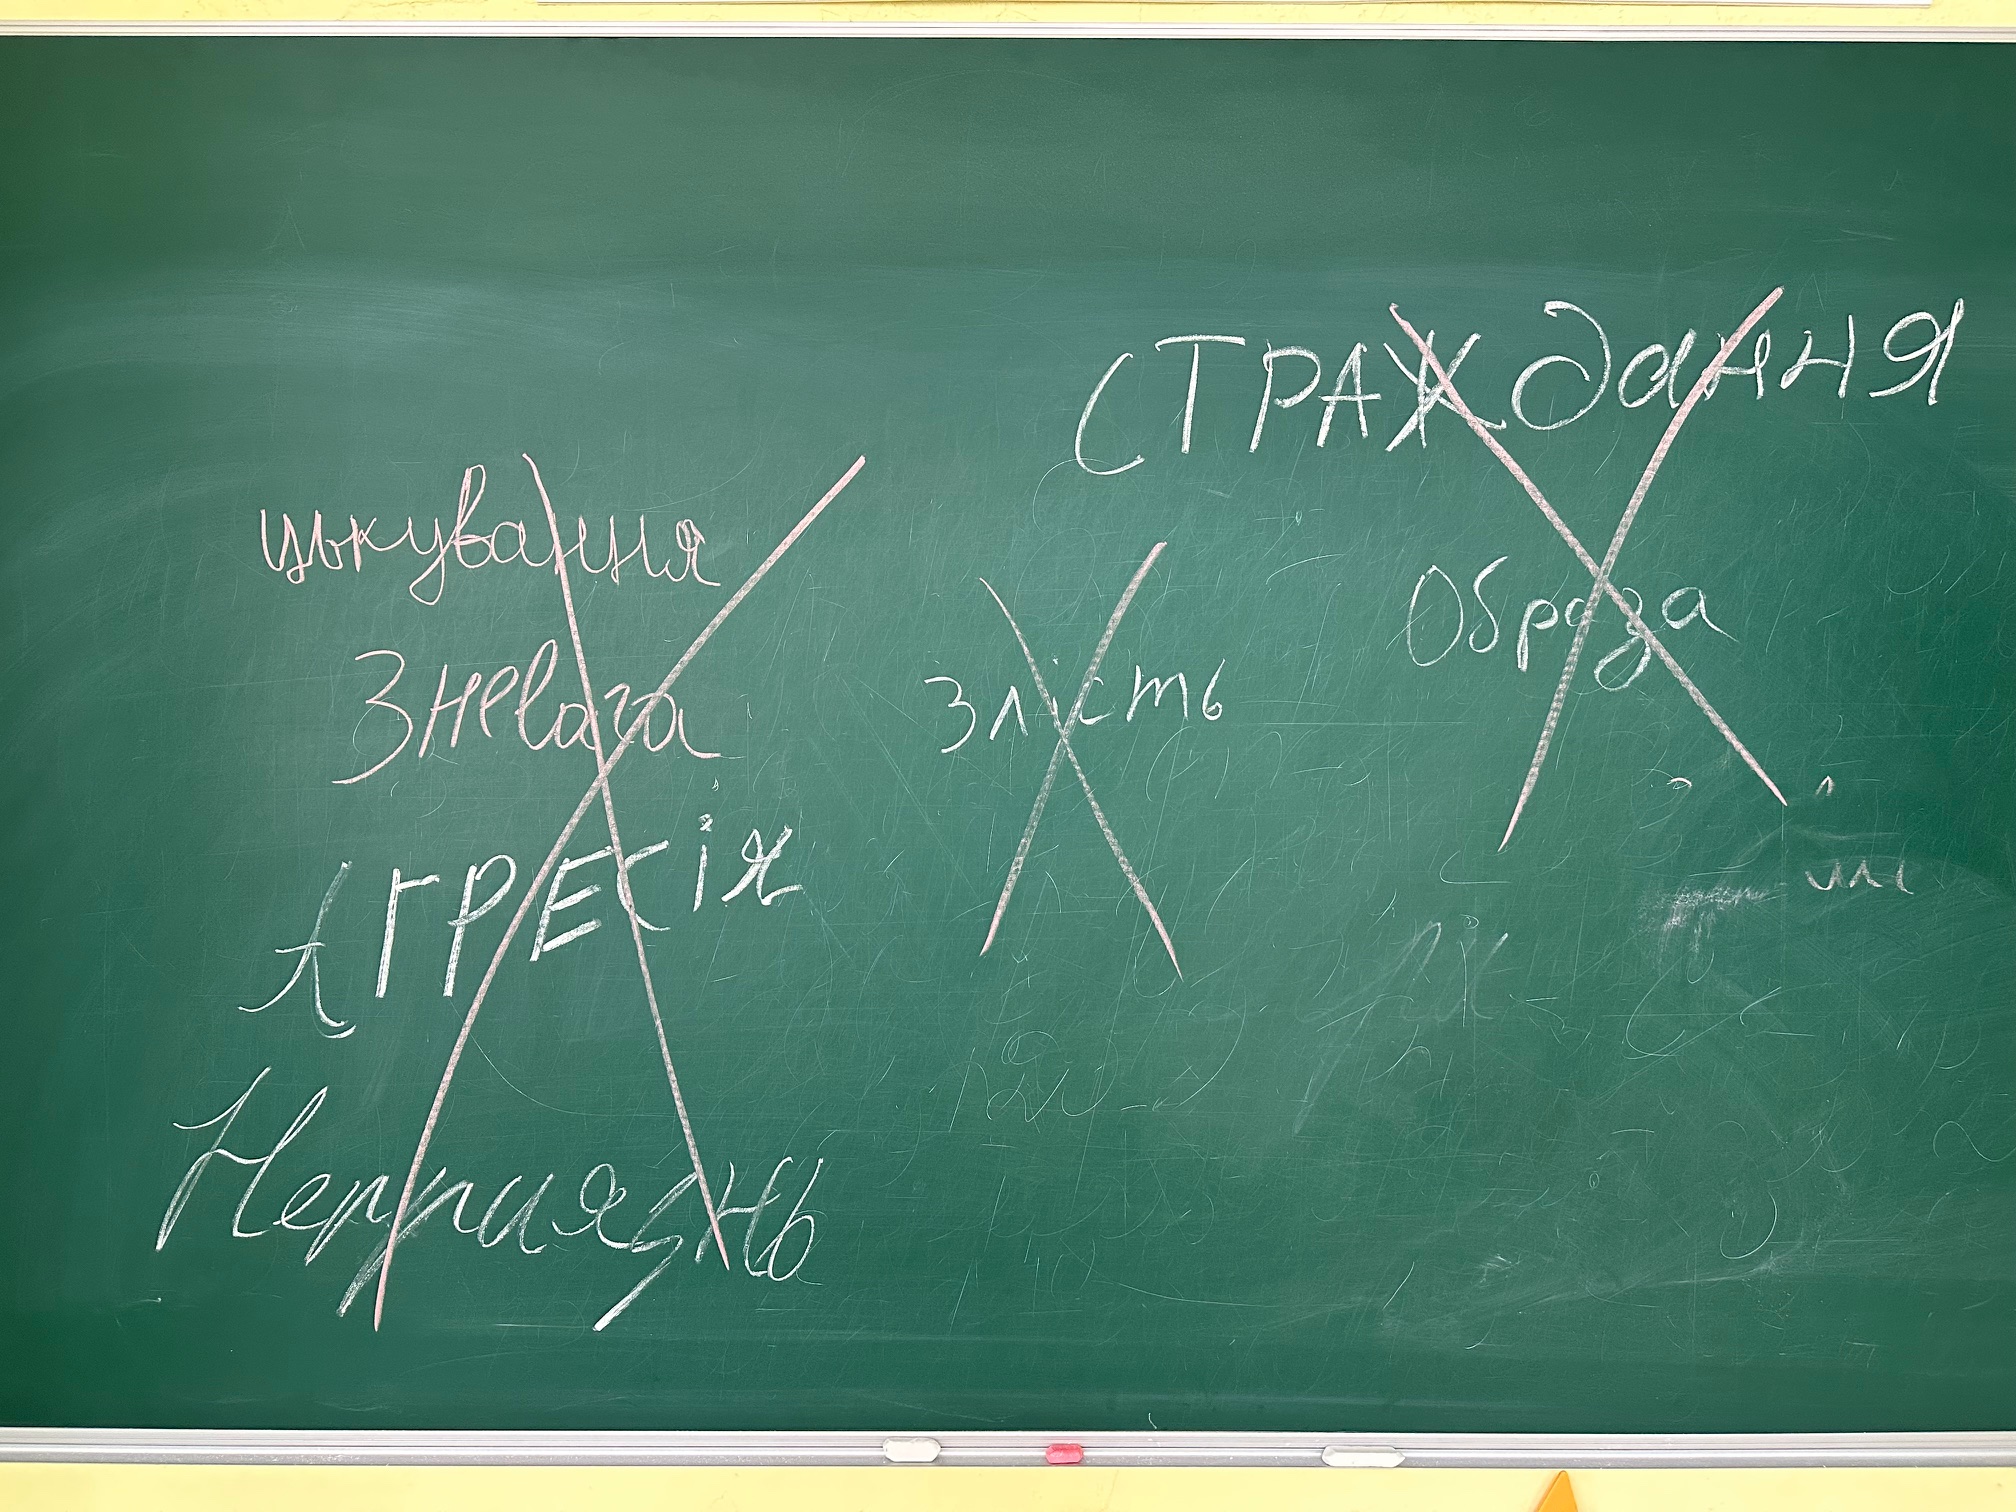 СТРАЖдання
цькування
Образа
Зневага
Злість
АГРЕСіЯ
Неприязнь